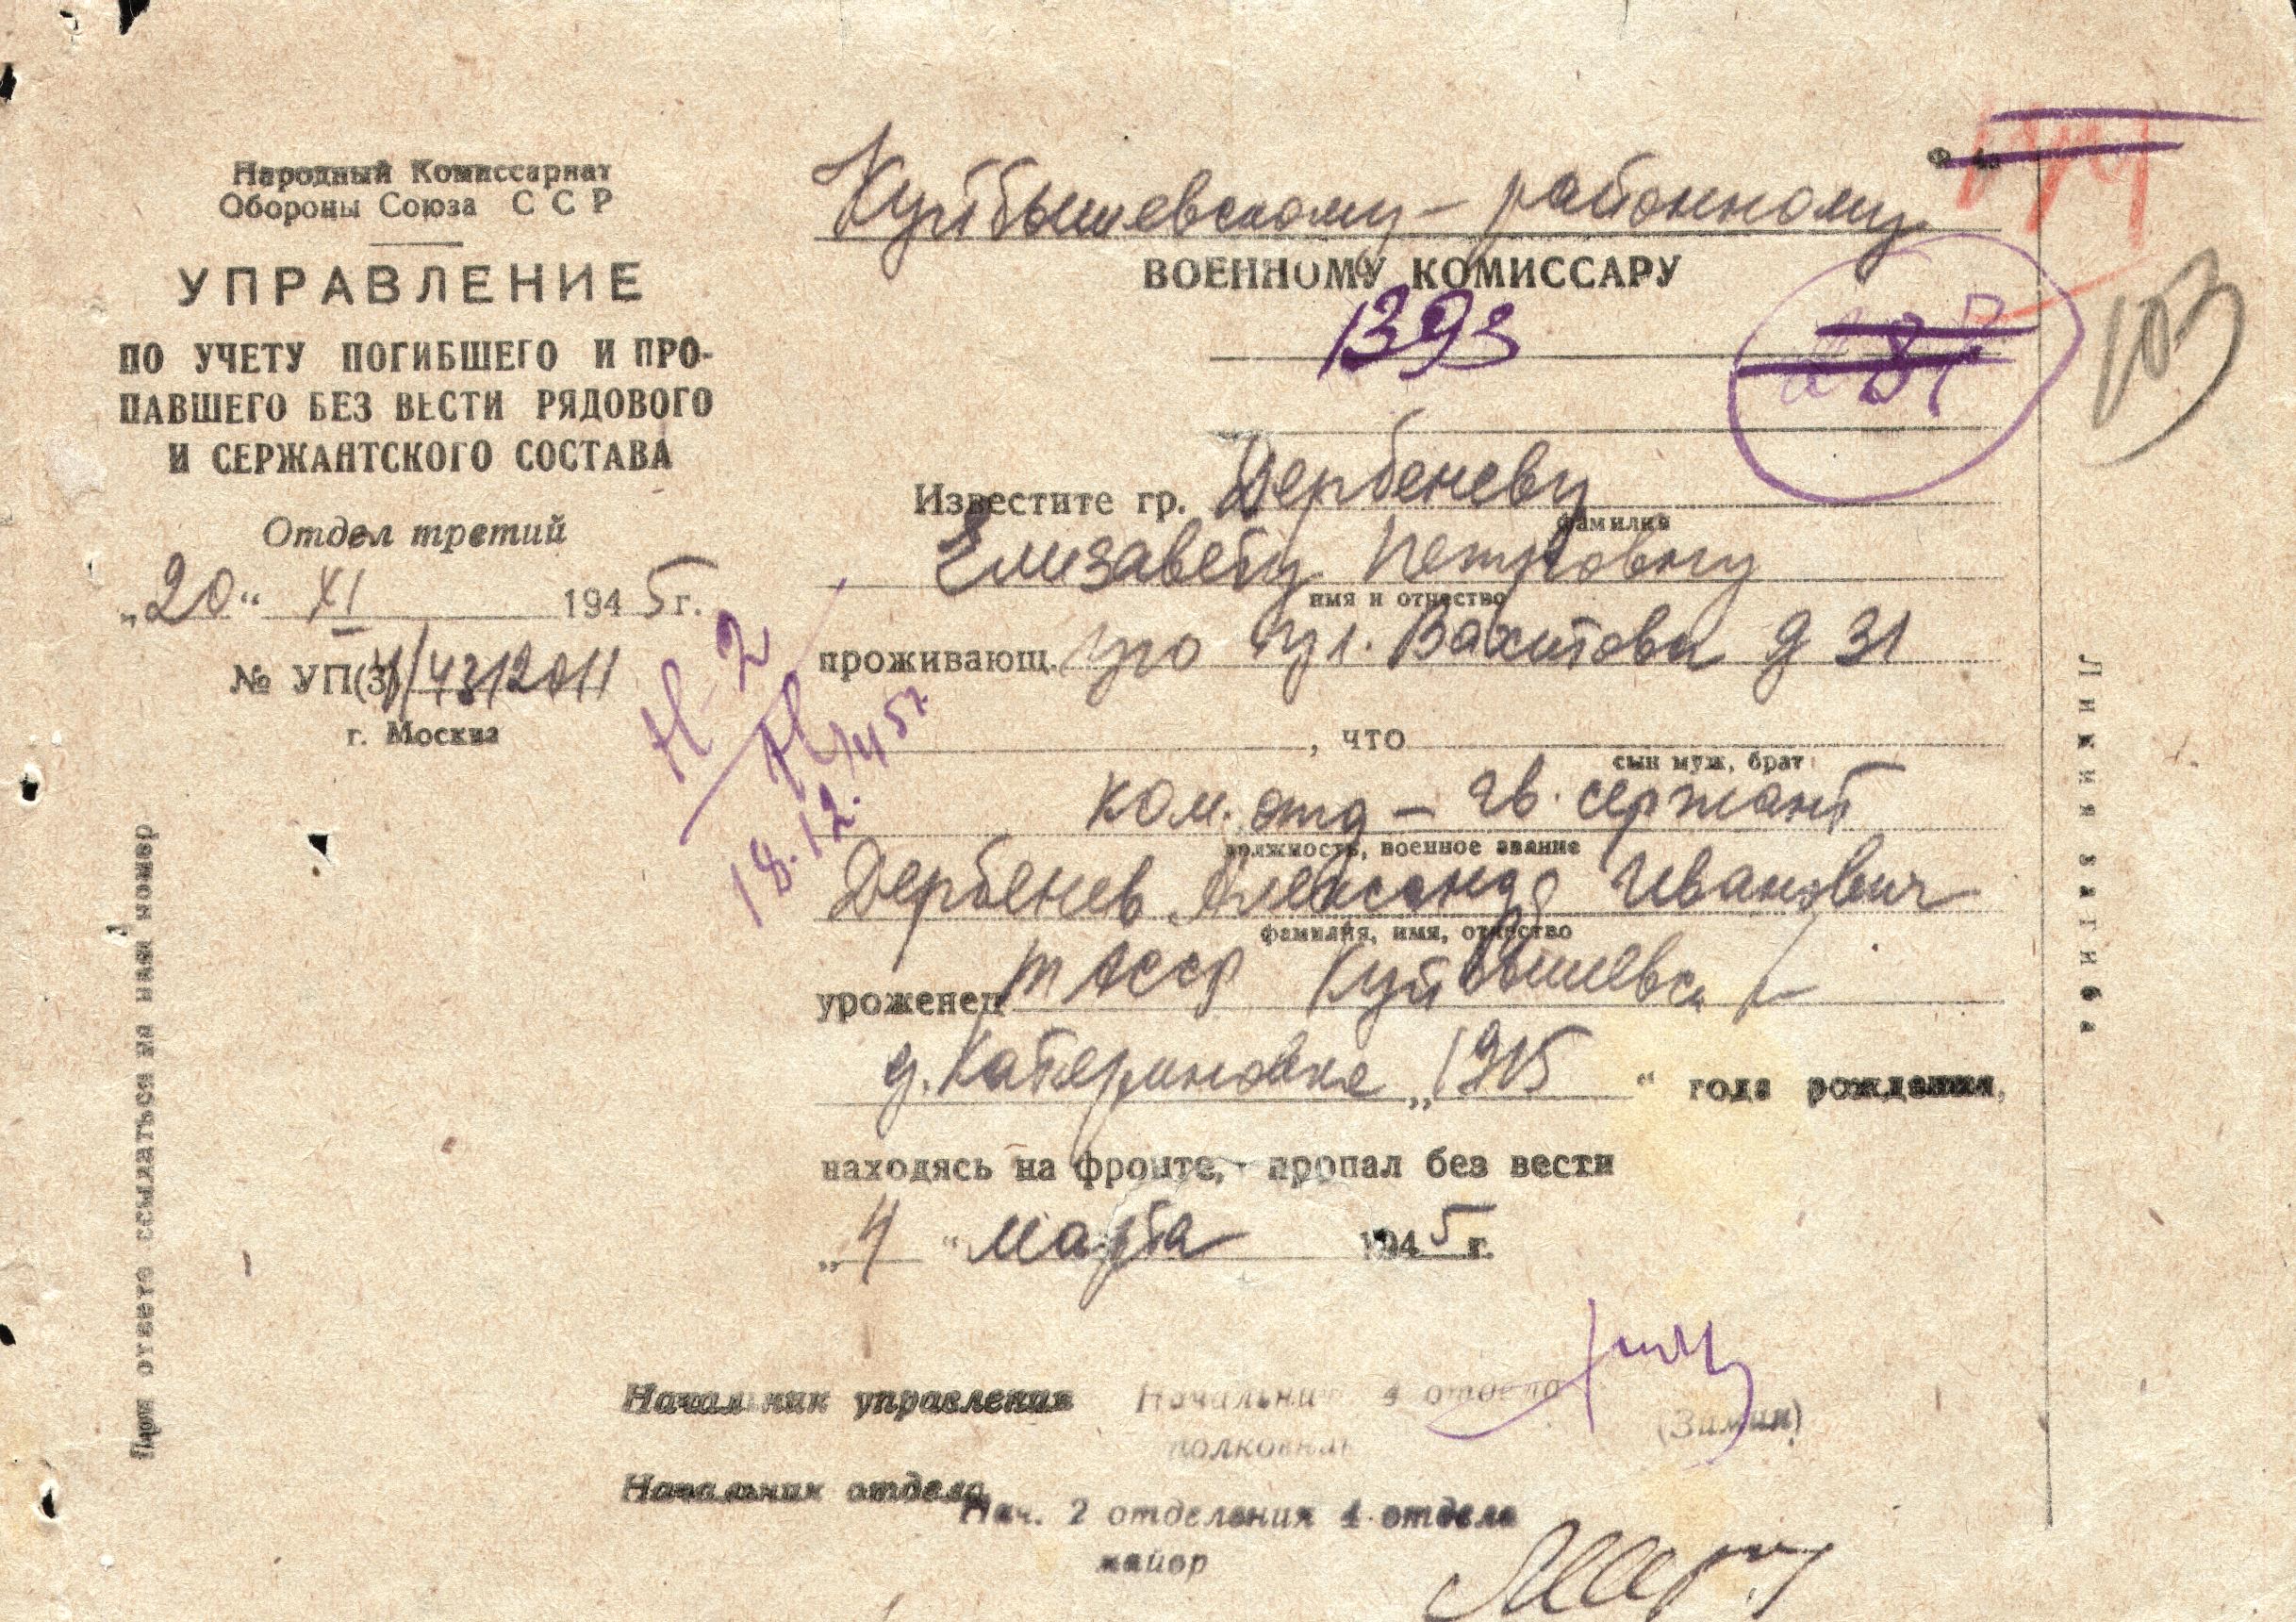 Народный Комиссариат
Обороны Союза ССР
УПРАВЛЕНИЕ
ПО УЧЕТУ ПОГИБШЕГО И ПРО-
ПАВШЕГО БЕЗ ВЕСТИ РЯДОВОГО
И СЕРЖАНТСКОГО СОСТАВА
Отдел третий
„20“ XI 1945 г.
№ УП(3)/431201
г. Москва
При ответе ссылаться на наш номер
Куйбышевскому - районному
ВОЕННОМУ КОМИССАРУ
1393
103
Известите гр. Дербеневу
фамилия
Елизавету Петровну
имя и отчество
проживающ. ул. Вахитова д 31
, что
сын муж, брат
ком. отд - гв. сержант
должность, военное звание
Дербенев Александр Иванович
фамилия, имя, отчество
уроженец ТАССР Куйбышевск
д. Катериновка „1915“ года рождения,
находясь на фронте, пропал без вести
„4“ марта 1945 г.
18.12.45г.
Линия загиба
Начальник управления
Начальник 4 отдела
полковник
(Замин)
Начальник отдела
Нач. 2 отделения 4 отдела
майор